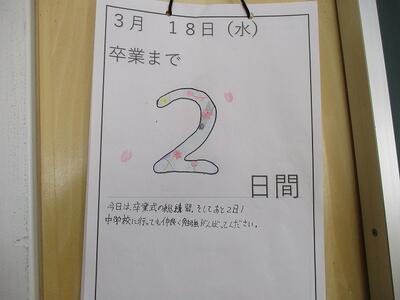 3月 18日(水)
卒業まで
2
日間
今日は、卒業式の総練習。そしてあと2日!
中学校に行っても仲良く勉強がんばってください。